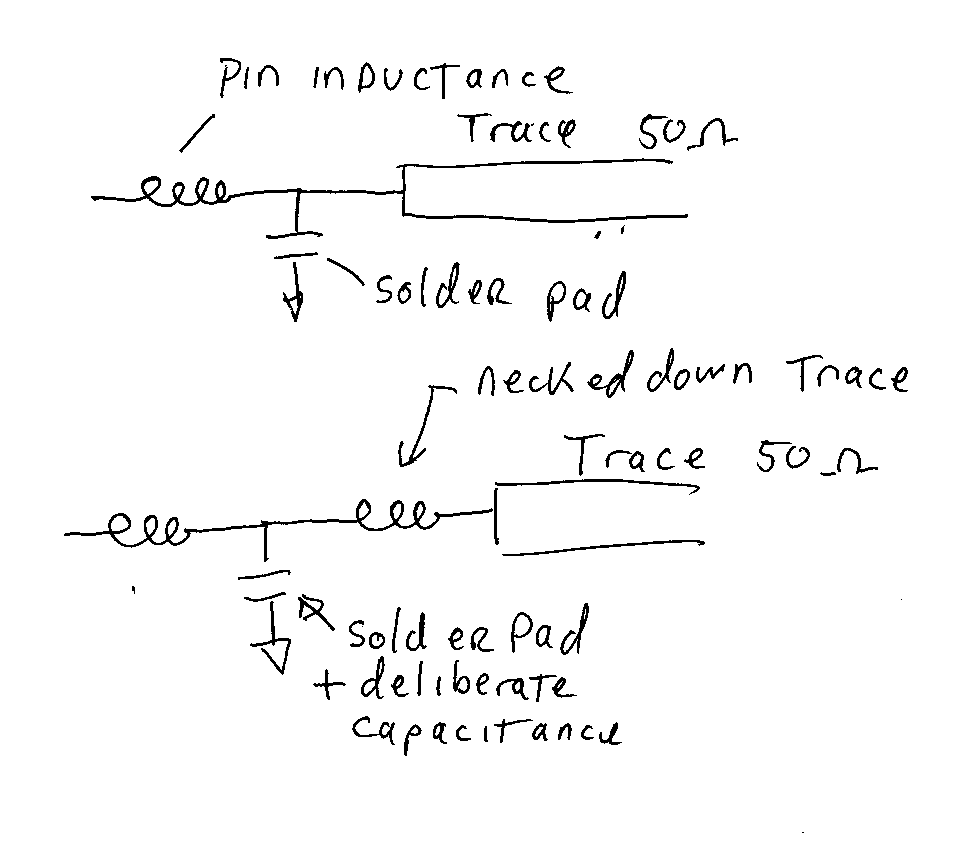 Pin inductance
Trace 50Ω
solder pad
necked down Trace
Trace 50Ω
solder Pad
+ deliberate
capacitance